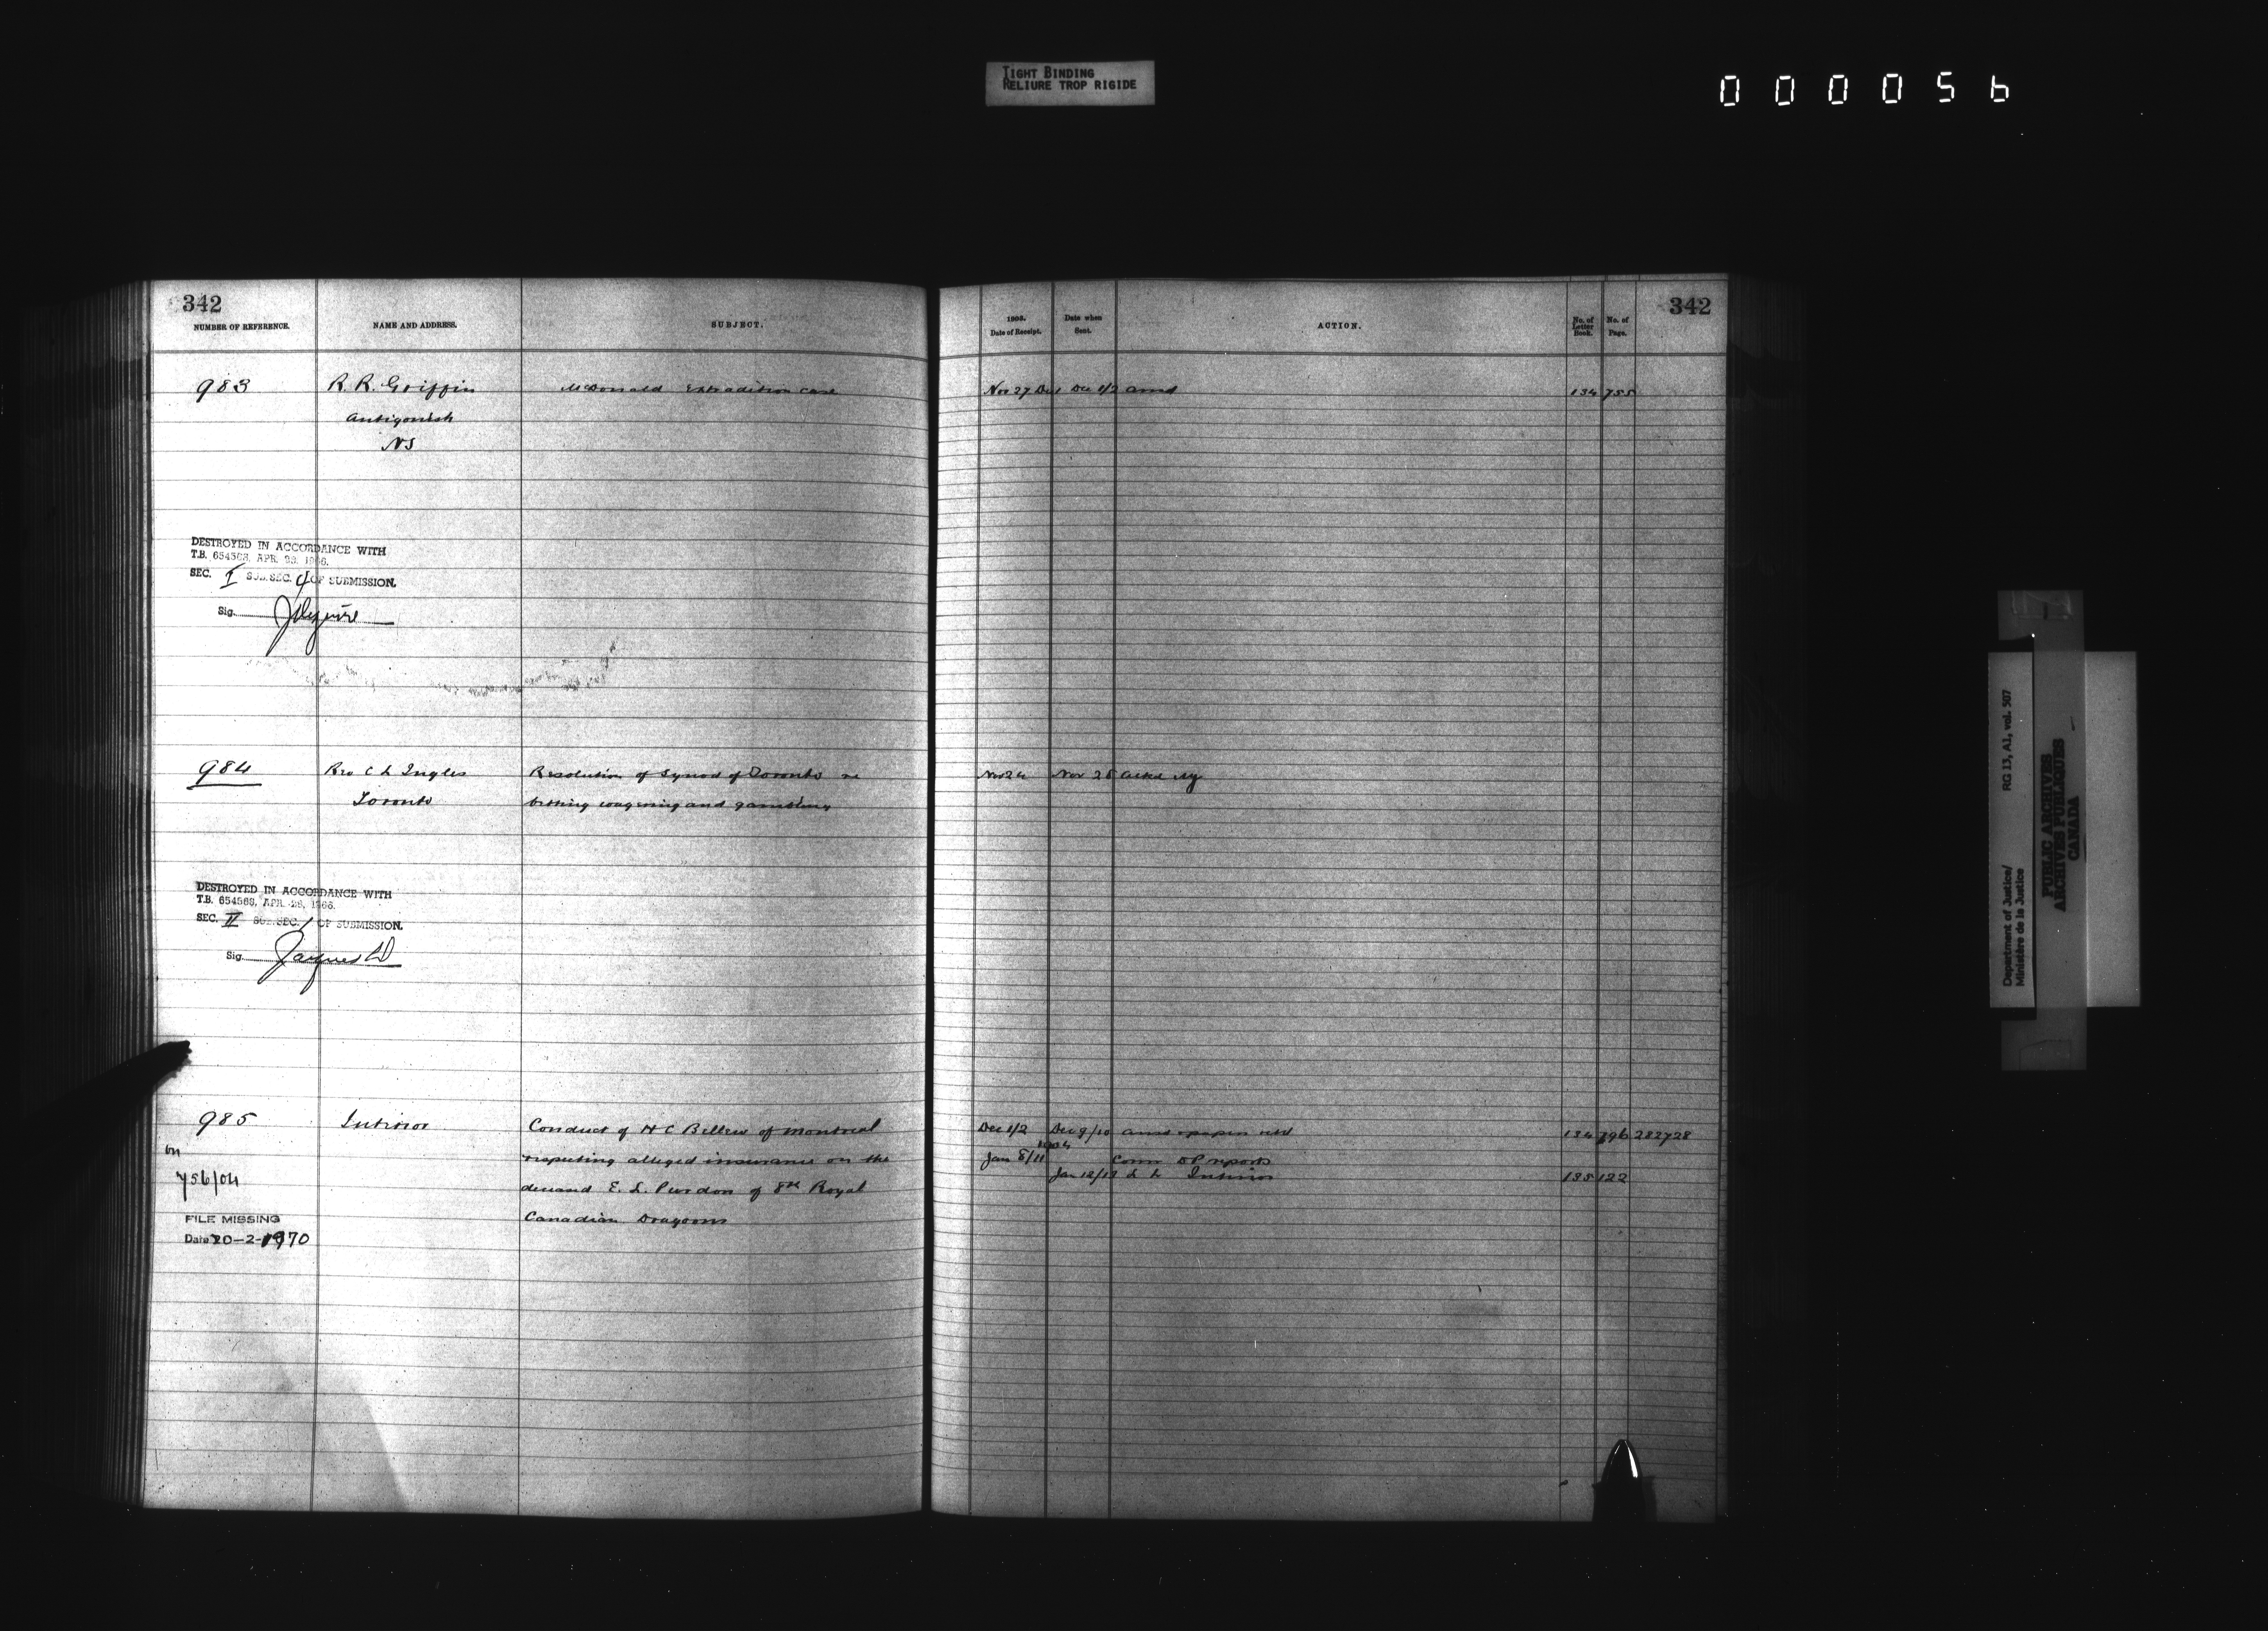 TIGHT BINDING
RELIURE TROP RIGIDE
000056
342
NUMBER OF REFERENCE. NAME AND ADDRESS. SUBJECT.
983 R. R. Griffin McDonald Extradition case
Antigonish
NS
DESTROYED IN ACCORDANCE WITH
T.B. 654563, APR. 28, 1966.
SEC. I SUB.SEC. 4 OF SUBMISSION.
Sig.
984 Rev C L Ingles Resolution of Synod of Toronto re
Toronto betting wagering and gambling
DESTROYED IN ACCORDANCE WITH
T.B. 654563, APR. 28, 1966.
SEC. II SUB.SEC. 1 OF SUBMISSION.
Sig. Jacques
985 Interior Conduct of H C Bellew of Montreal
on respecting alleged insurance on the
756/04 deceased E. L. Purdon of 8th Royal
FILE MISSING Canadian Dragoons
Date 20-2-1970
342
1903.
Date of Receipt. Date when Sent. ACTION. No. of Letter Book. No. of Page.
Nov 27 Dec 1 Dec 1/2 ansd 134 755
Nov 24 Nov 25 acked
Dec 1/2 Dec 9/10 ansd papers retd 134 796 282728
1904
Jan 8/11 Comr DP reports
Jan 12/12 L L Interior 135 122
Department of Justice/
Ministère de la Justice
RG 13, A1, vol. 507
PUBLIC ARCHIVES
ARCHIVES PUBLIQUES
CANADA